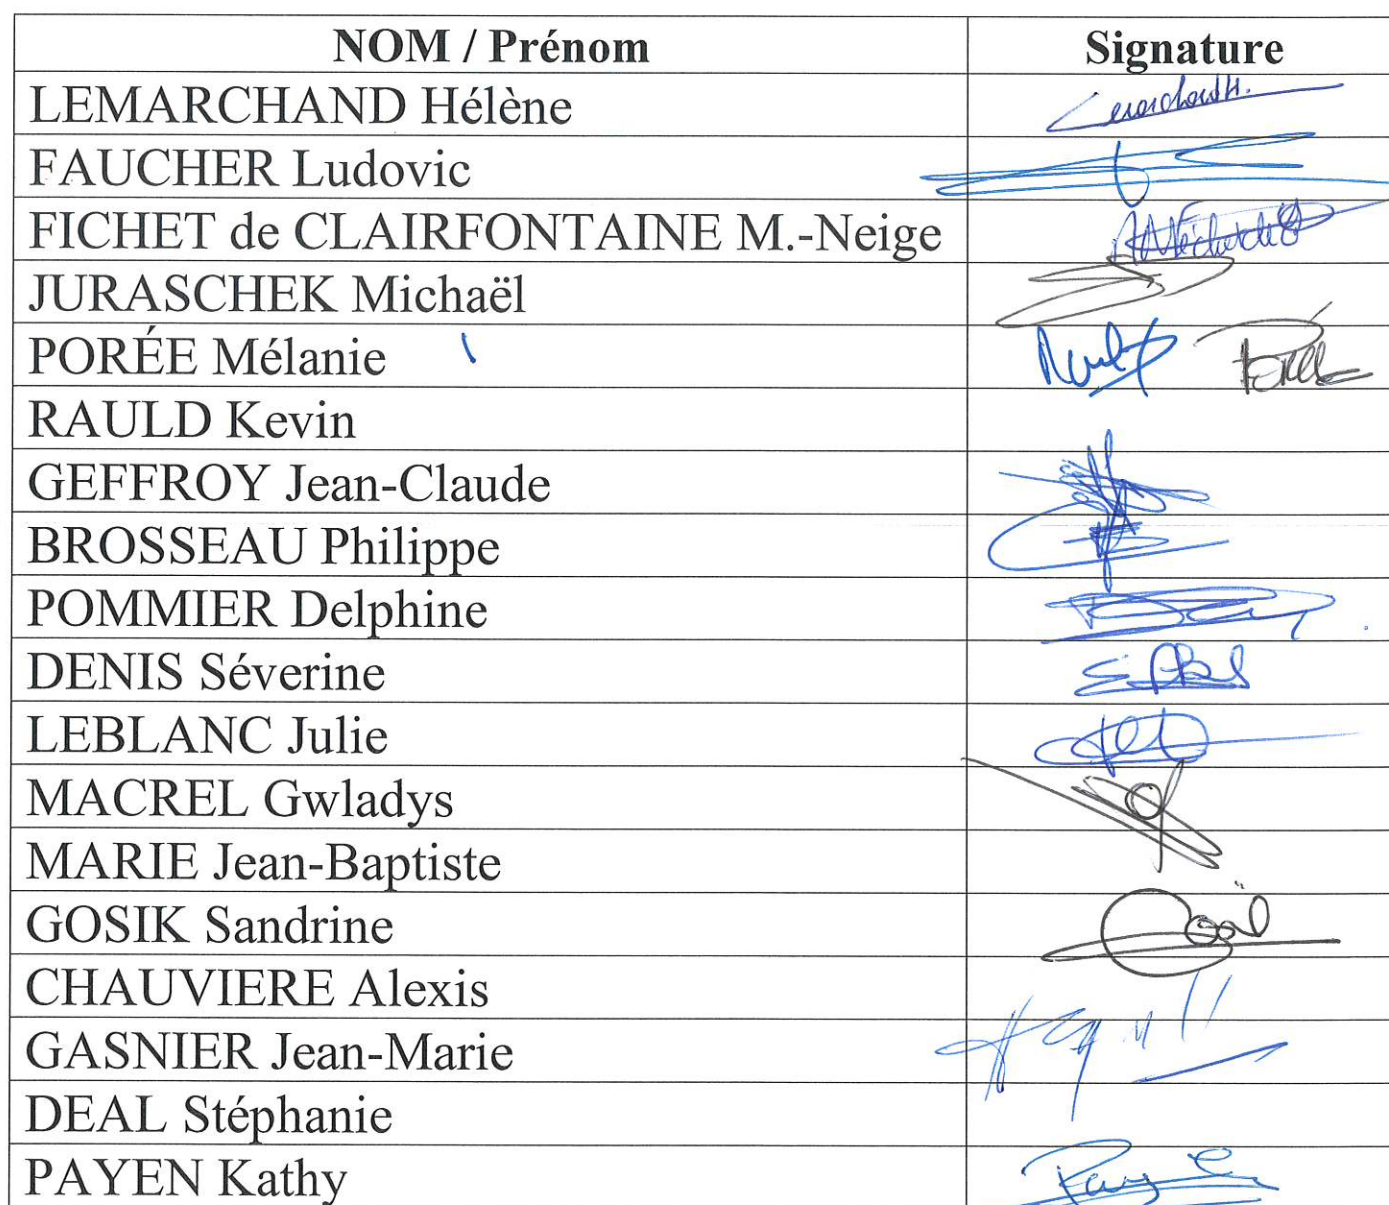 NOM / Prénom Signature
LEMARCHAND Hélène
FAUCHER Ludovic
FICHET de CLAIRFONTAINE M.-Neige
JURASCHEK Michaël
PORÉE Mélanie
RAULD Kevin
GEFFROY Jean-Claude
BROSSEAU Philippe
POMMIER Delphine
DENIS Séverine
LEBLANC Julie
MACREL Gwladys
MARIE Jean-Baptiste
GOSIK Sandrine
CHAUVIERE Alexis
GASNIER Jean-Marie
DEAL Stéphanie
PAYEN Kathy